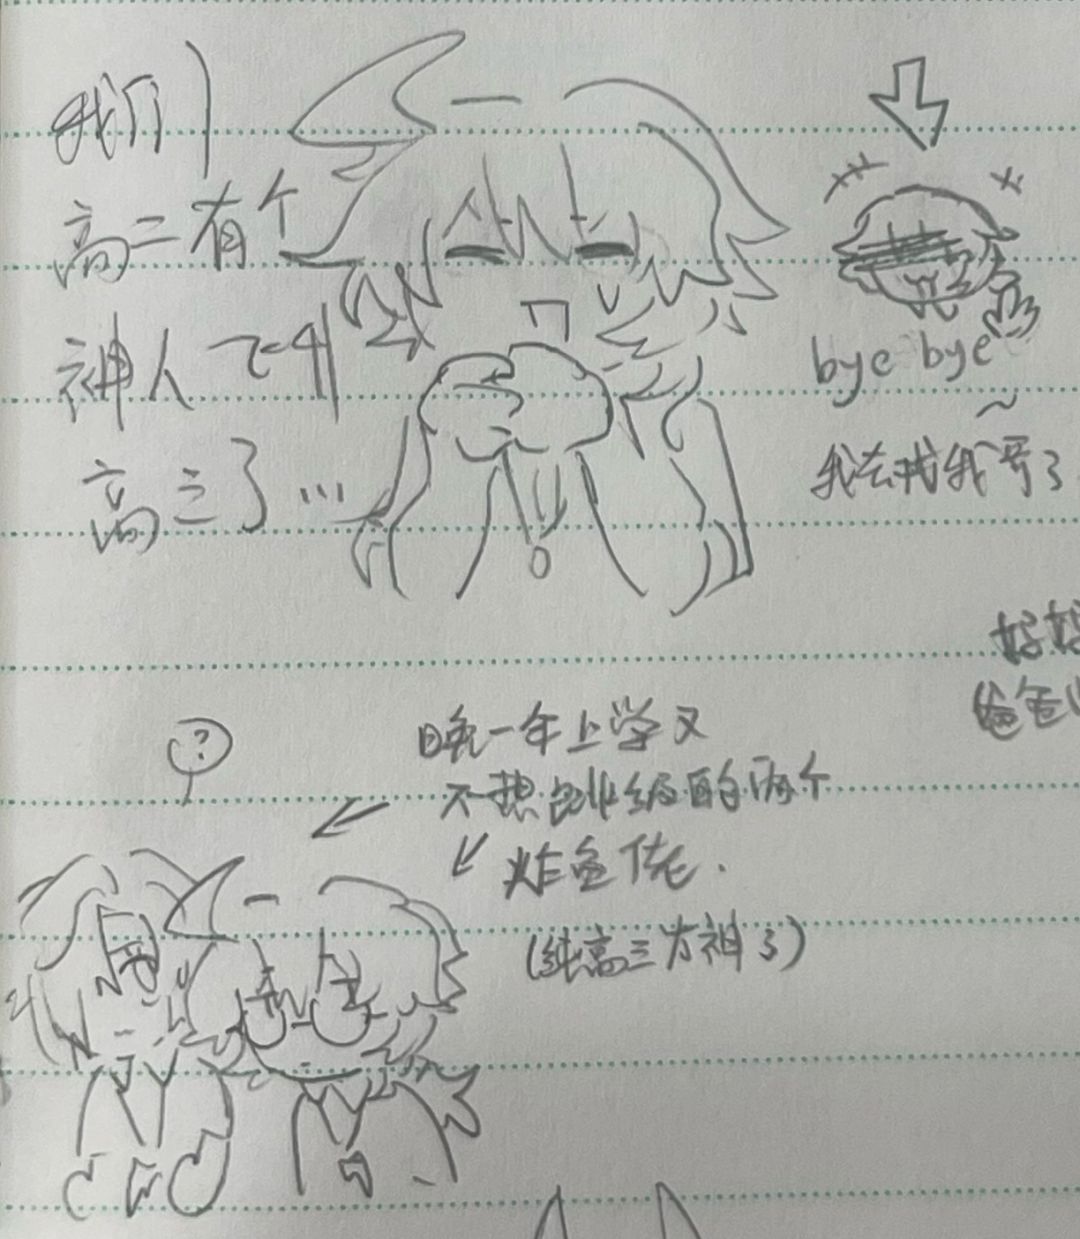 我们
高二有个
神人飞升
高三了...
bye bye
~
我去找我哥了
?
晚一年上学又
不想跳级的两个
炸鱼佬.
(纯高三方神了)
好好
爸爸